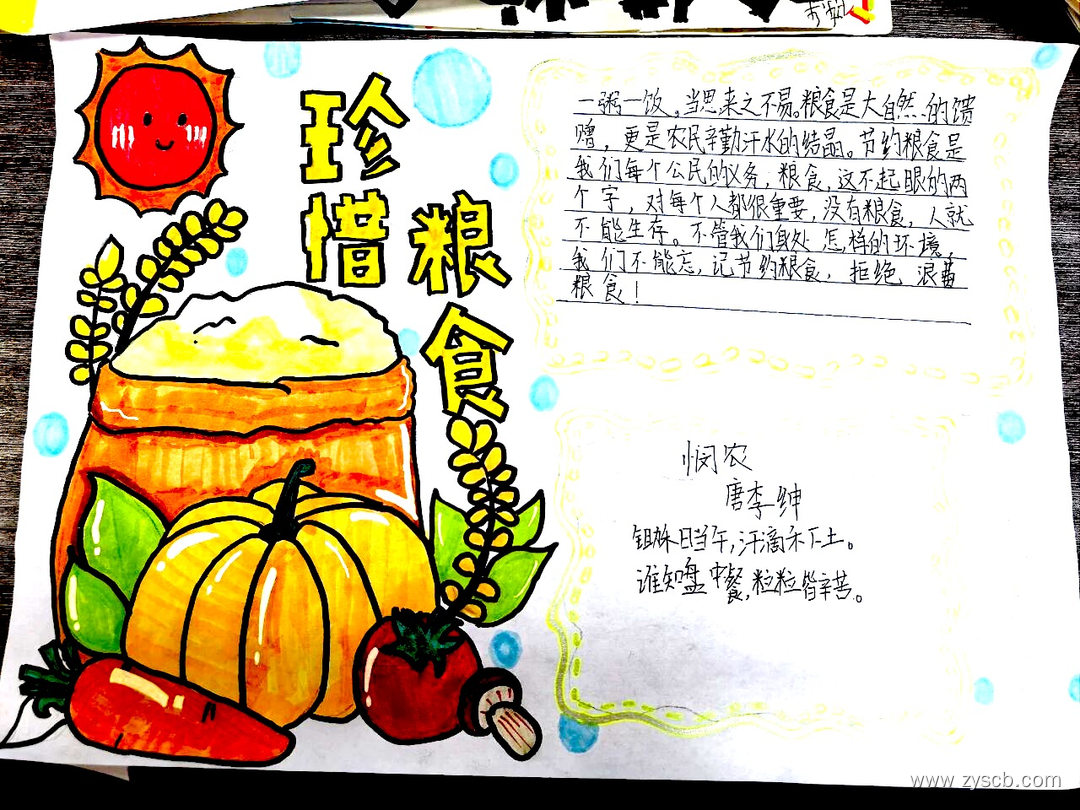 珍惜
粮食
一粥一饭,当思来之不易。粮食是大自然的馈
赠,更是农民辛勤汗水的结晶。节约粮食是
我们每个公民的义务,粮食,这不起眼的两
个字,对每个人都很重要,没有粮食,人就
不能生存。不管我们身处怎样的环境,
我们不能忘,记节约粮食,拒绝浪费
粮食!
悯农
唐李绅
锄禾日当午,汗滴禾下土。
谁知盘中餐,粒粒皆辛苦。
www.zyscb.com